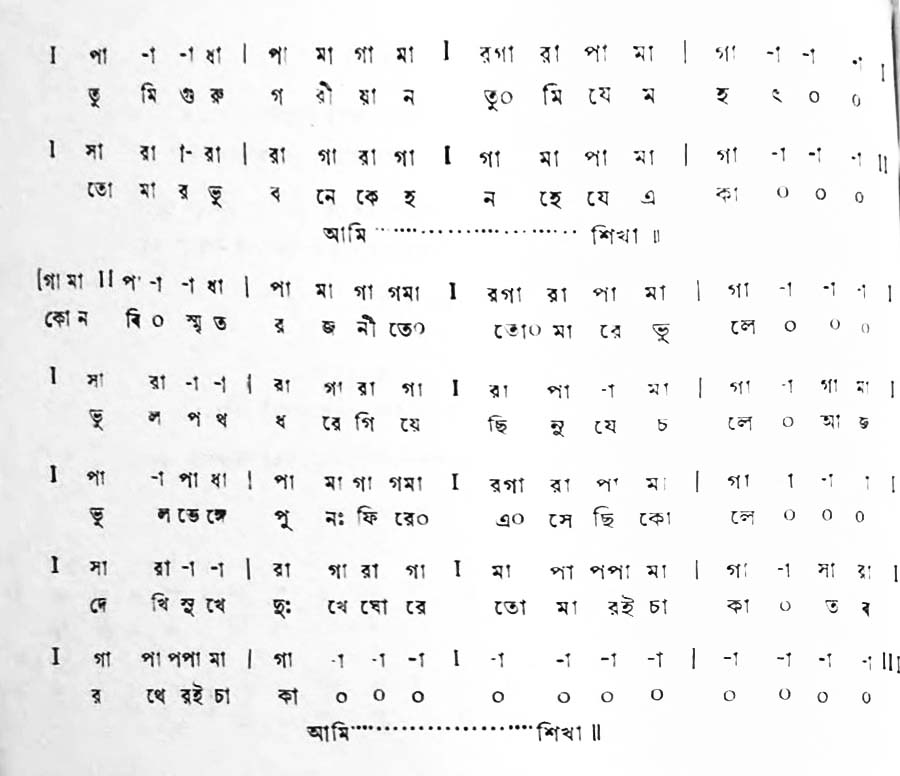 I পা -া -া ধা | পা মা গা মা I রগা রা পা মা | গা -া -া -া I
তু মি গু রু গ রী য়া ন তু০ মি যে ম হ ৎ ০ ০
I সা রা া- রা | রা গা রা গা I গা মা পা মা | গা -া -া -া II
তো মা র ভু ব নে কে হ ন হে যে এ কা ০ ০ ০
আমি ............................ শিখা ॥
[গা মা II প -া -া ধা | পা মা গা গমা I রগা রা পা মা | গা -া -া -া I
কো ন বি ০ স্মৃ ত র জ নী তে০ তো০ মা রে ভু লে ০ ০ ০
I সা রা -া -া | রা গা রা গা I রা পা -া মা | গা -া গা মা I
ভু ল প থ ধ রে গি য়ে ছি নু যে চ লে ০ আ জ
I পা -া পা ধা | পা মা গা গমা I রগা রা পা মা | গা া -া া I
ভু ল ভে ঙ্গে পু নঃ ফি রে০ এ০ সে ছি কো লে ০ ০ ০
I সা রা -া -া | রা গা রা গা I মা পা পপা মা | গা -া সা রা I
দে খি সু খে দুঃ খে ঘো রে তো মা রই চা কা ০ ত ব
I গা পা পপা মা | গা -া -া -া I -া -া -া -া | -া -া -া -া III
র থে রই চা কা ০ ০ ০ ০ ০ ০ ০ ০ ০ ০ ০
আমি ............................ শিখা ॥